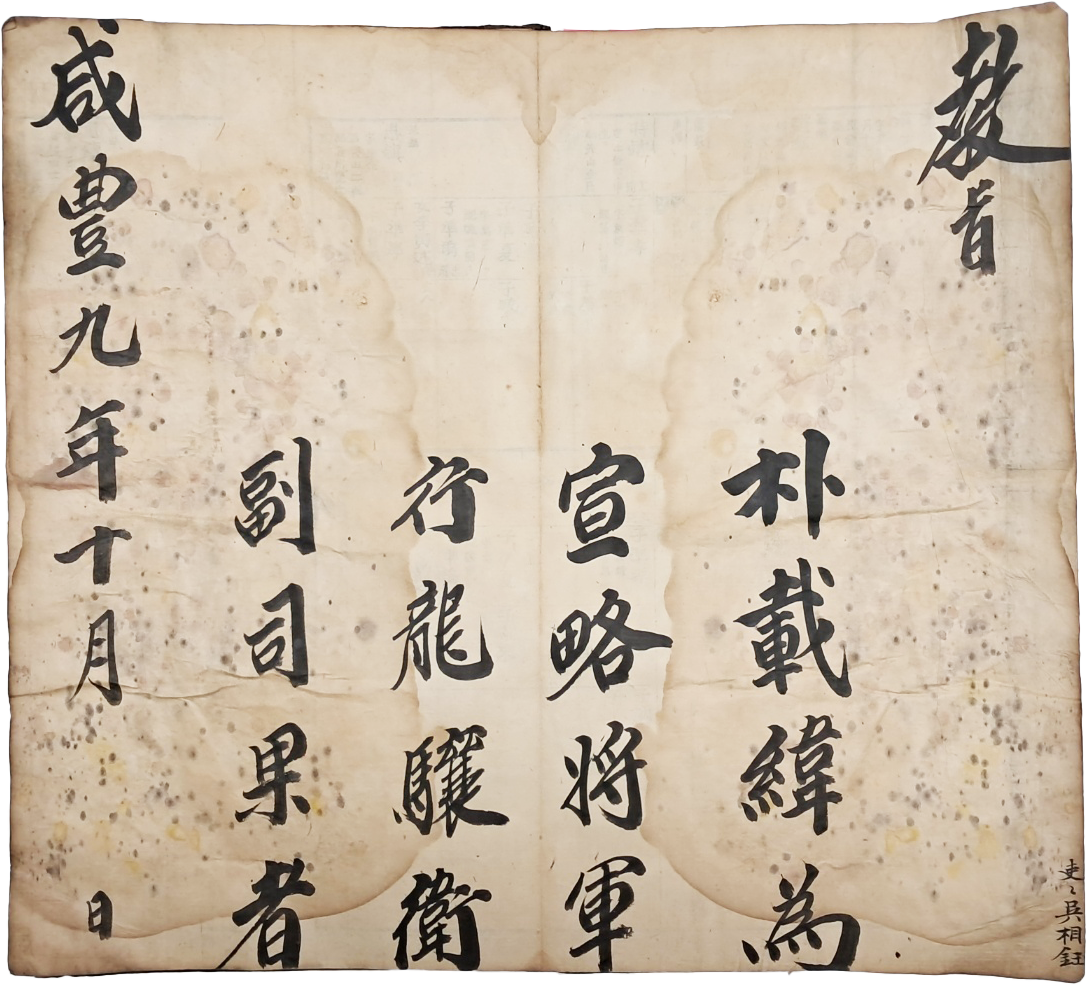 教旨
朴載緯為
宣略將軍
行龍驤衛
副司果者
咸豊九年十月 日
吏〻吳相鈺